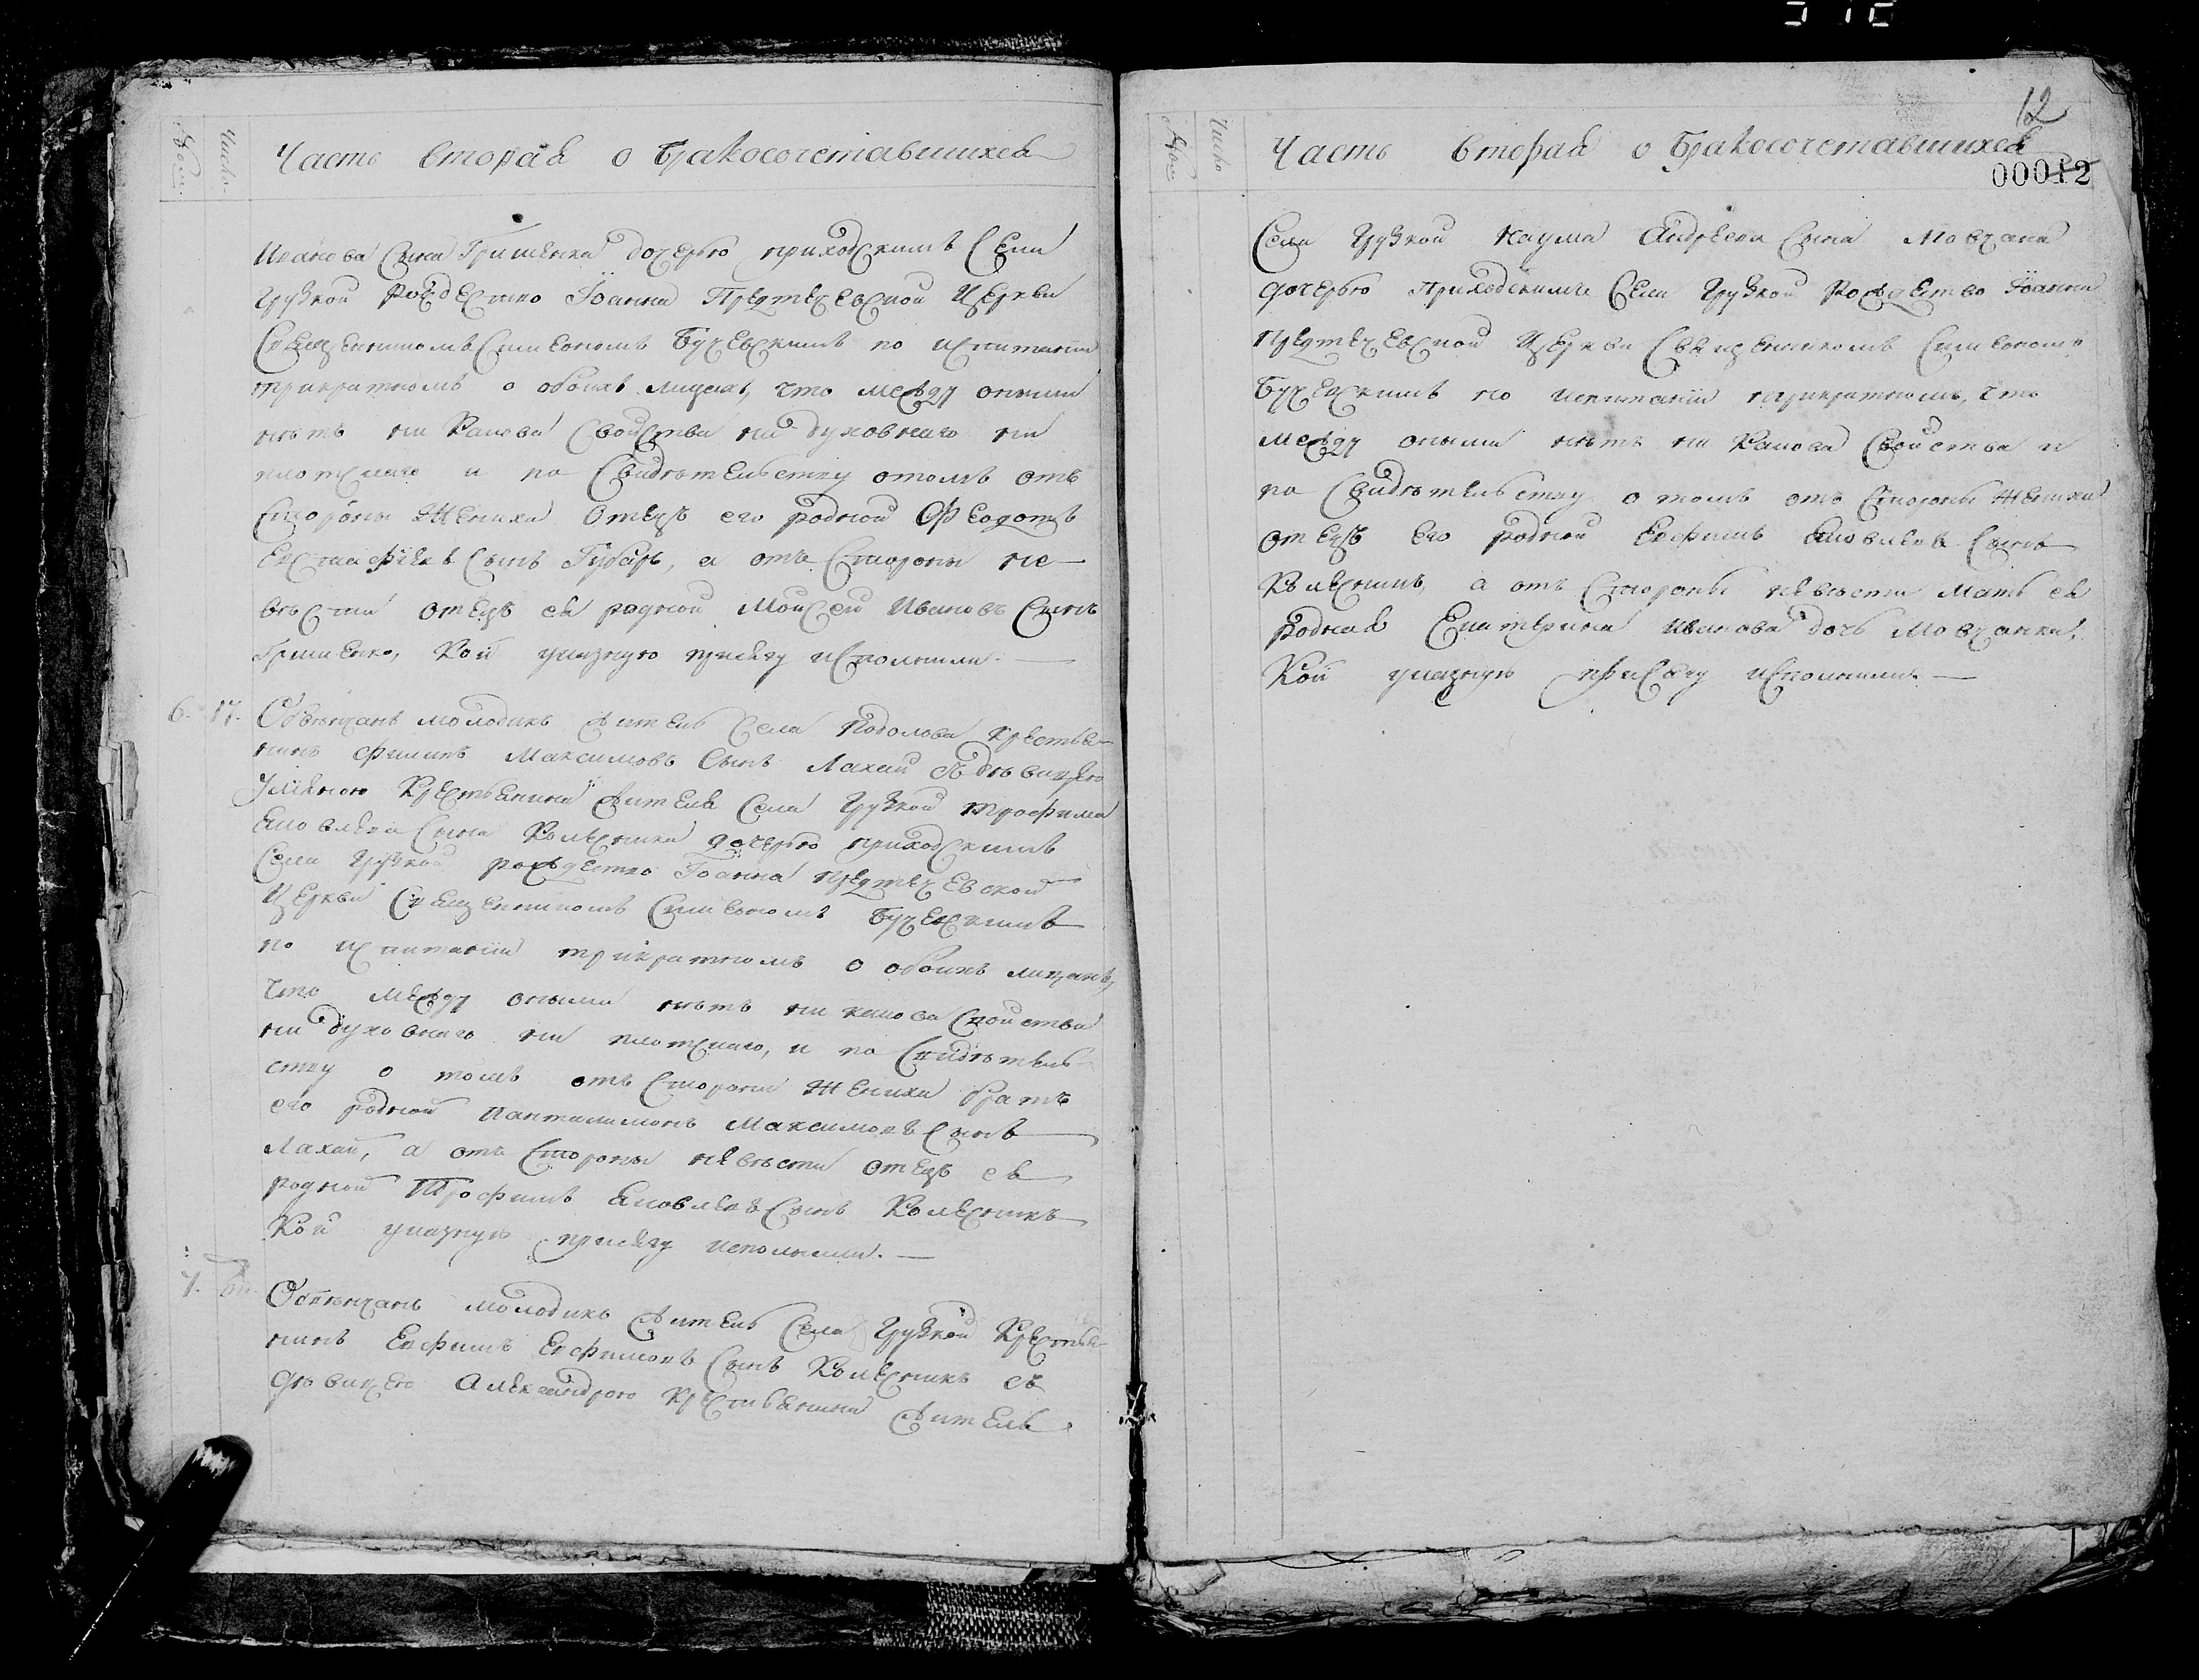 Броч:
Число
Часть вторая о бракосочетавшихся
Иванова сына Гришенка дочерью приходскимъ села
Грузкой Рождество Иоанна Предтечевской церкви
священникомъ Симеономъ Бучевскимъ по испитании
трикратномъ о обоихъ лицахъ, что между оными
нѣтъ ни какова свойства ни духовнаго ни
плотскаго и по свидѣтельству отомъ отъ
стороны жениха отецъ его родной Федотъ
Евстафіевъ сынъ Губарь, а отъ стороны не-
вѣсты отецъ ея родной Моисей Ивановъ сынъ
Гришенко, кои указную присягу исполнили.
6. 17. Обвѣнчанъ молодикъ житель села Подолова крестья-
нинъ Филипъ Максимовъ сынъ Лахай съ дѣвицею
Уліяною крестьянина жителя села Грузкой Трофима
Яковлева сына Колесника дочерью приходскимъ
села Грузкой рождество Иоанна предтечевской
церкви священникомъ Симеономъ Бучевскимъ
по испитаніи трикратномъ о обоихъ лицахъ,
что между оными нѣтъ ни какова свойства
ни духовнаго ни плотскаго, и по свидѣтель-
ству о томъ отъ стороны жениха братъ
его родной Пантилимонъ Максимовъ сынъ
Лахай, а отъ стороны невѣсты отецъ ея
родной Трофимъ Яковлевъ сынъ Колесникъ
кои указную присягу исполнили.
7. Обвѣнчанъ молодикъ житель села Грузкой крестья-
нинъ Евфимъ Евфимовъ сынъ Колесникъ съ
дѣвицею Александрою крестьянина жителя
12
00012
Число
Часть вторая о бракосочетавшихся
села Грузкой Наума Андреева сына Мовчана
дочерью приходскимъ села Грузкой Рождество Иоанна
предтечевской церкви священникомъ Симеономъ
Бучевскимъ по испитаніи трикратномъ, что
между оными нѣтъ ни какова свойства и
по свидѣтельству о томъ отъ стороны жениха
отецъ его родной Евфимъ Яковлевъ сынъ
Колесникъ, а отъ стороны невѣсты мать ея
родная Екатерина Иванова дочь Мовчанка,
кои указную присягу исполнили.